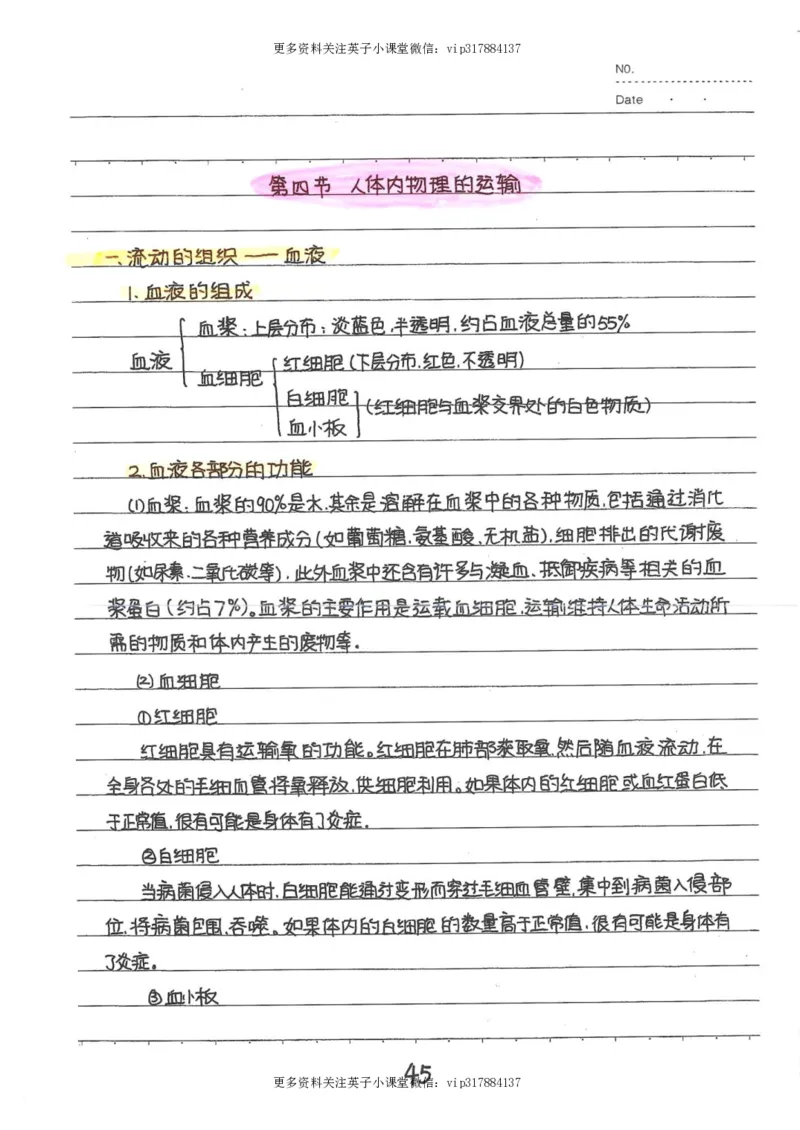 更多资料关注英子小课堂微信：vip317884137
NO.
Date
第四节 人体内物理的运输
一、流动的组织——血液
1.血液的组成
血浆：上层分布；淡蓝色，半透明，约占血液总量的55%
血液
红细胞(下层分布，红色，不透明)
血细胞
白细胞
(红细胞与血浆交界处的白色物质)
血小板
2.血液各部分的功能
(1)血浆：血浆的90%是水，其余是溶解在血浆中的各种物质，包括通过消化
道吸收来的各种营养成分(如葡萄糖、氨基酸、无机盐)，细胞排出的代谢废
物(如尿素、二氧化碳等)，此外血浆中还含有许多与凝血、抵御疾病等相关的血
浆蛋白(约占7%)。血浆的主要作用是运载血细胞，运输维持人体生命活动所
需的物质和体内产生的废物等.
(2)血细胞
①红细胞
红细胞具有运输氧的功能。红细胞在肺部获取氧，然后随血液流动，在
全身各处的毛细血管将氧释放，供细胞利用。如果体内的红细胞或血红蛋白低
于正常值，很有可能是身体有了炎症.
②白细胞
当病菌侵入人体时，白细胞能通过变形而穿过毛细血管壁，集中到病菌入侵部
位，将病菌包围、吞噬。如果体内的白细胞的数量高于正常值，很有可能是身体有
了炎症。
③血小板
45
更多资料关注英子小课堂微信：vip317884137